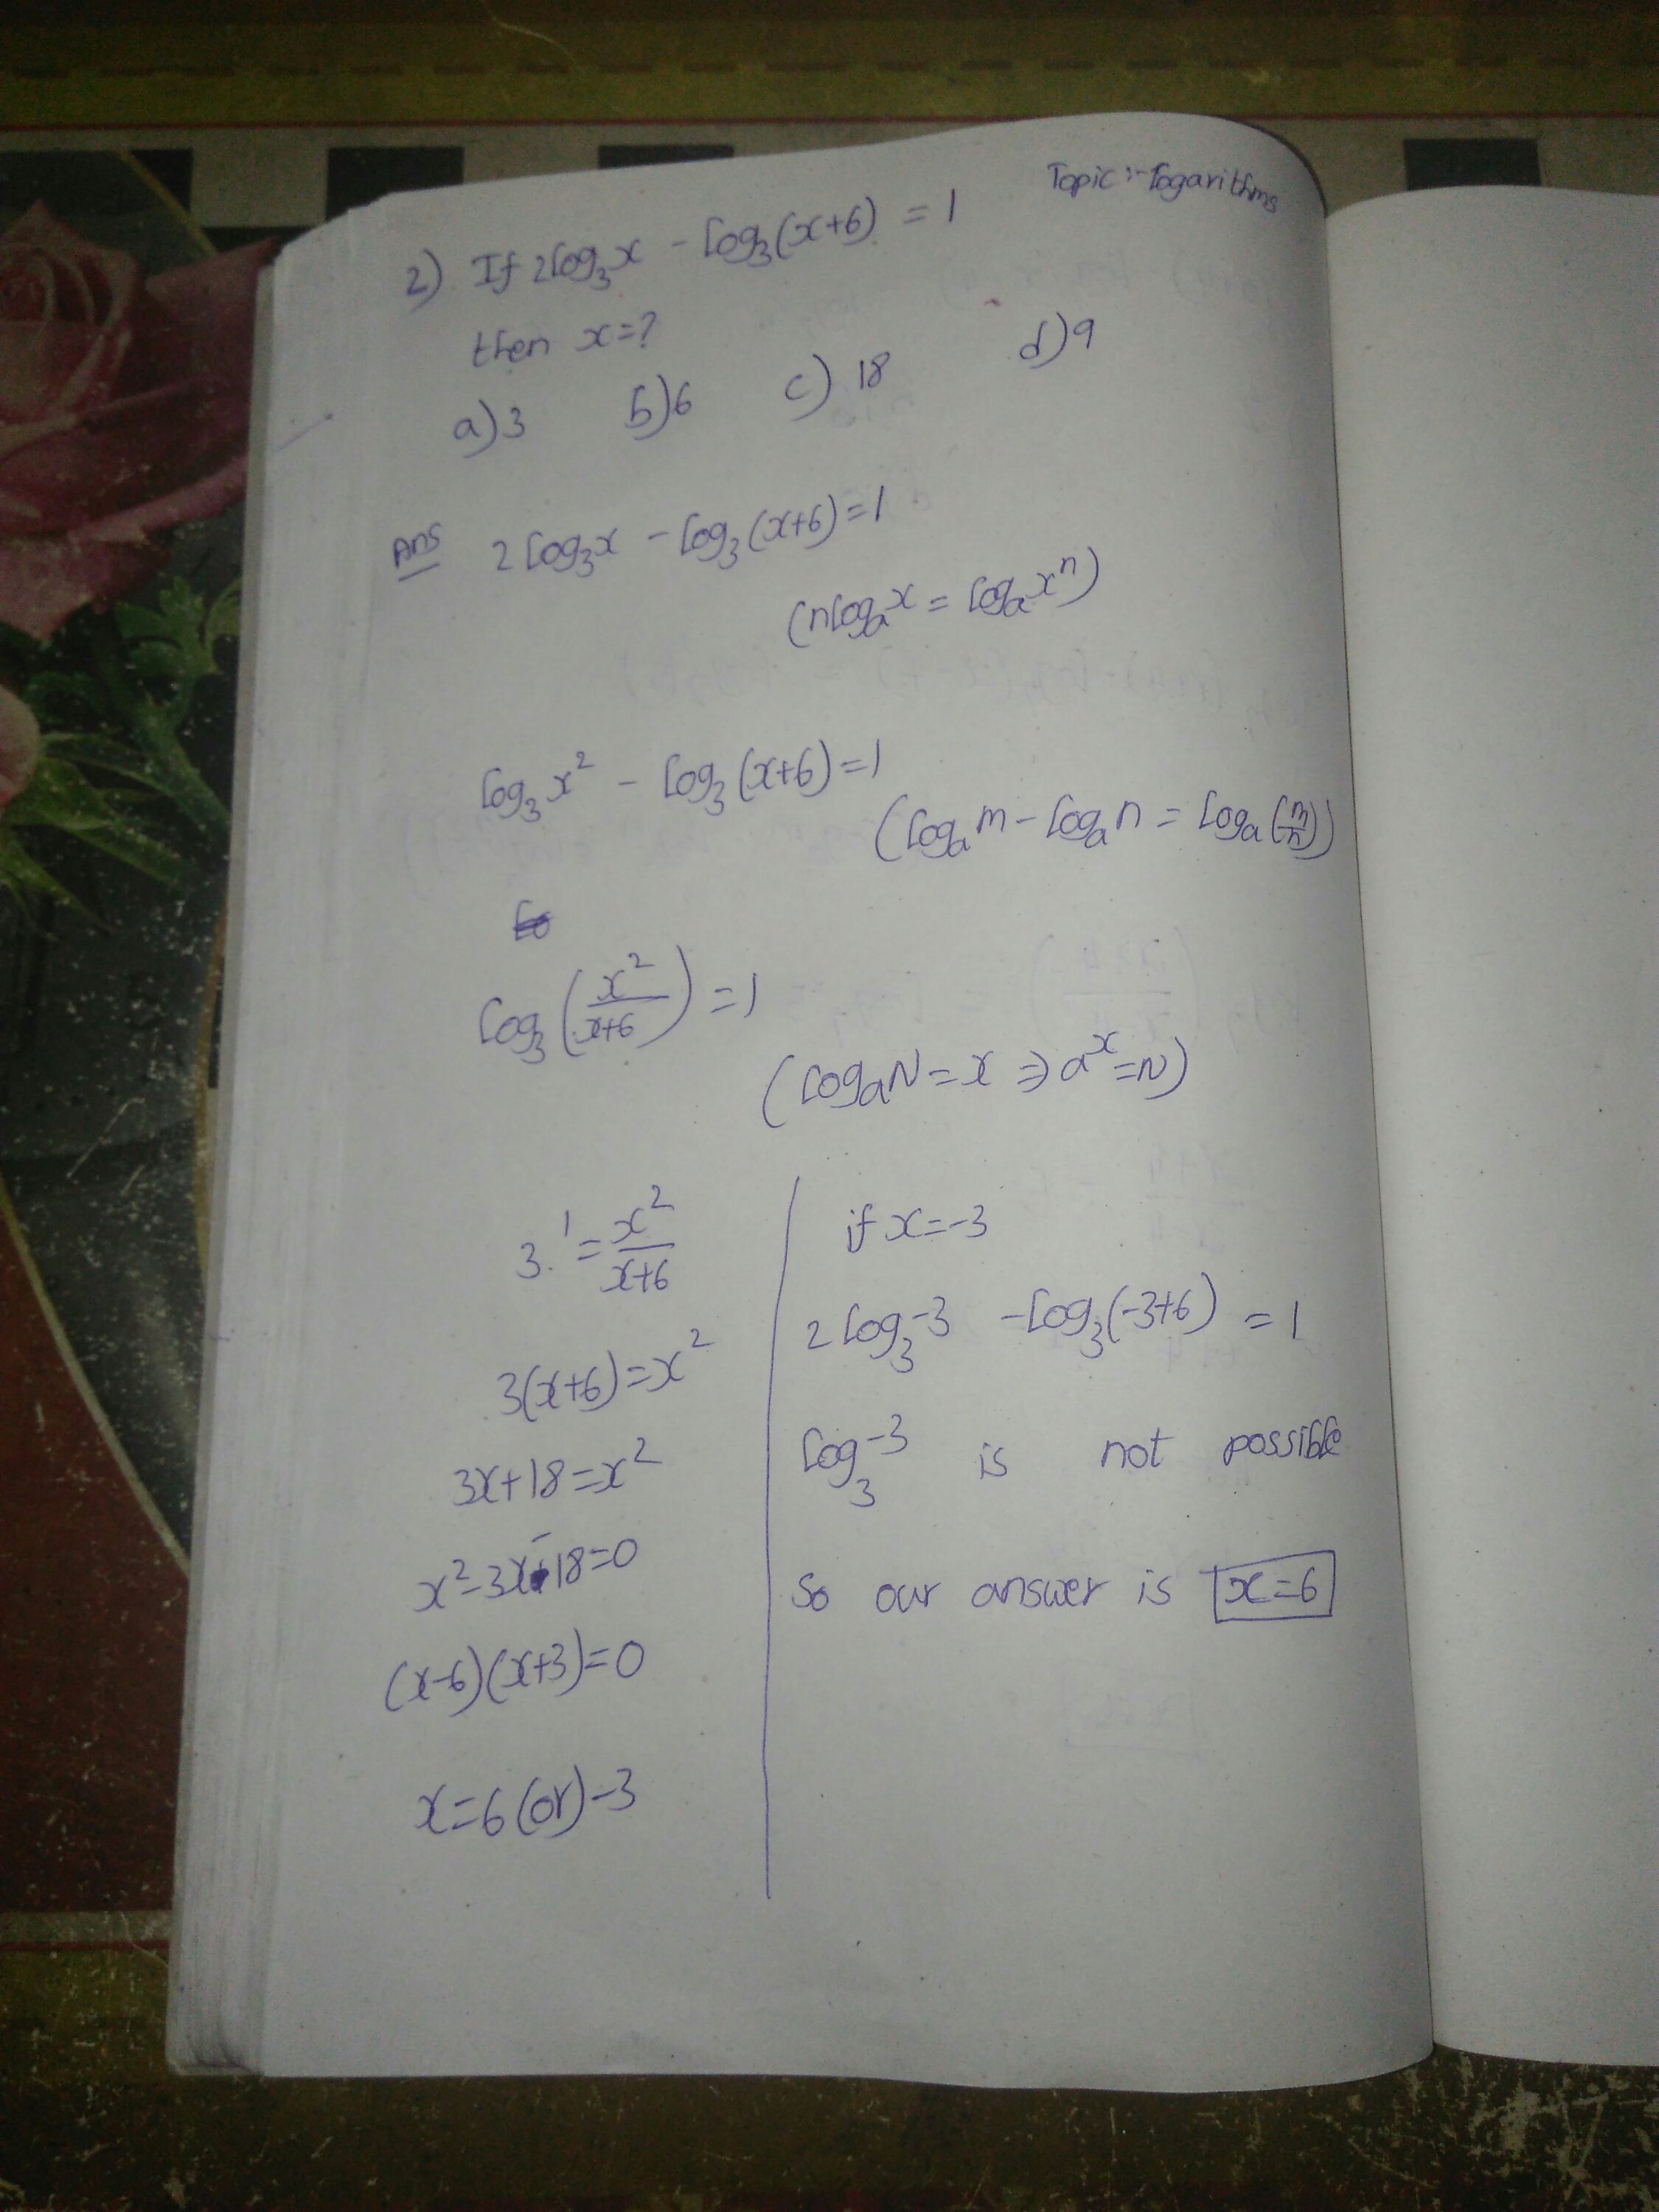 Topic :- Logarithms
2) If 2log₃x - log₃(x+6) = 1
then x=?
a) 3 b) 6 c) 18 d) 9
Ans 2 log₃x - log₃(x+6)=1
(nlogₐx = logₐxⁿ)
log₃x² - log₃(x+6)=1
(logₐm - logₐn = logₐ(m/n))
log₃(x²/(x+6)) = 1
(logₐN = x ⇒ aˣ=N)
3.¹ = x²/(x+6)
3(x+6)=x²
3x+18=x²
x²-3x-18=0
(x-6)(x+3)=0
x=6 (or) -3
if x=-3
2 log₃-3 - log₃(-3+6) = 1
log₃-3 is not possible
So our answer is x=6